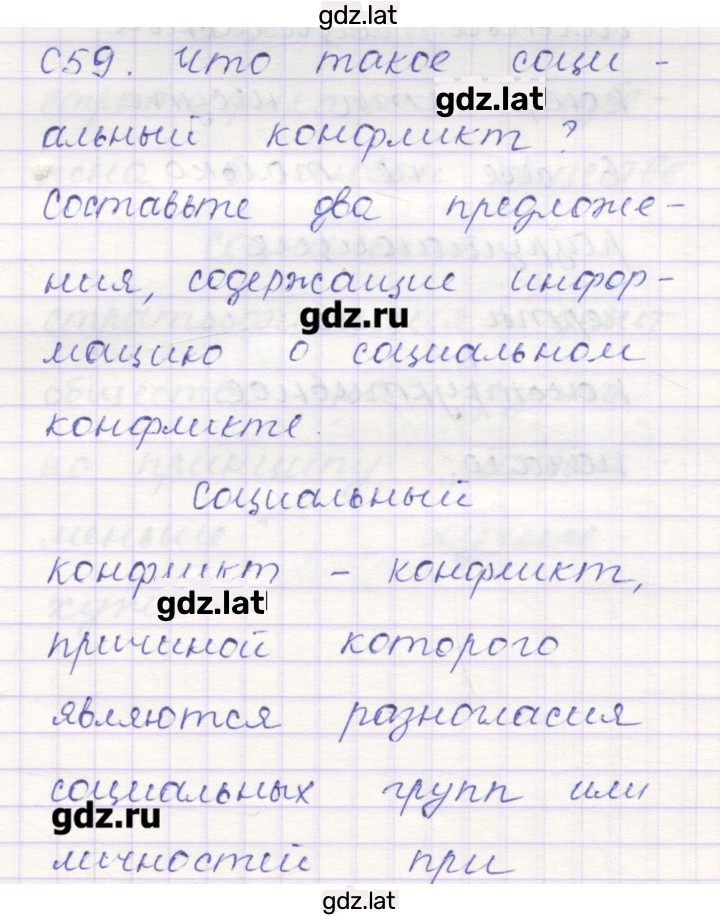 gdz.lat
С59. Что такое соци -
gdz.lat
альный конфликт?
Составьте два предложе -
ния, содержащие инфор -
gdz.ru
мацию о социальном
конфликте.
Социальный
конфликт - конфликт,
gdz.lat
причиной которого
являются разногласия
социальных групп или
gdz.ru
личностей при
gdz.lat